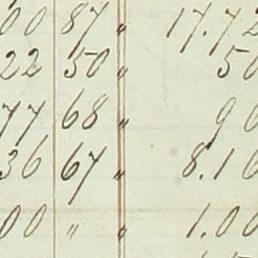 00 87 " 17.72
22 50 " 50
77 68 " 90
36 67 " 8.10
00 " " 1.00